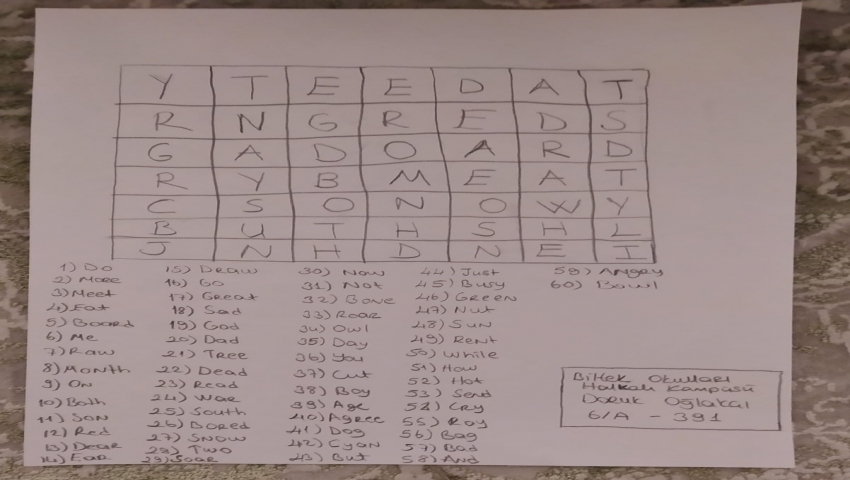 Y T E E D A T
R N G R E D S
G A D O A R D
R Y B M E A T
C S O N O W Y
B U T H S H L
J N H D N E I
1) Do
2) More
3) Meet
4) Eat
5) Board
6) Me
7) Raw
8) Month
9) On
10) Both
11) Son
12) Red
13) Dear
14) Ear
15) Draw
16) Go
17) Great
18) Sad
19) God
20) Dad
21) Tree
22) Dead
23) Read
24) War
25) South
26) Bored
27) Snow
28) Two
29) Soar
30) Now
31) Not
32) Gone
33) Roar
34) Owl
35) Day
36) You
37) Cut
38) Boy
39) Age
40) Agree
41) Dog
42) Cyan
43) But
44) Just
45) Busy
46) Green
47) Nut
48) Sun
49) Rent
50) While
51) How
52) Hot
53) Send
54) Cry
55) Roy
56) Bag
57) Bad
58) And
59) Angry
60) Bowl
Bilek Okulları
Halkalı Kampüsü
Doruk Oğlakal
6/A - 391